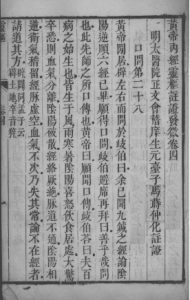 黃帝內經靈樞註證發微卷四
明太醫院正文會稽庠生元臺子馬蒔仲化註證
口問第二十八
黃帝閒居辟左右而問於岐伯曰余已聞九鍼之經論陰
陽逆順六經已畢願得口問岐伯避席再拜曰善乎哉問
也此先師之所口傳也黃帝曰願聞口傳岐伯答曰夫百
病之始生也皆生于風雨寒暑陰陽喜怒飲食居處大驚
卒恐則血氣分離陰陽破散經絡厥絕脉道不通陰陽相
逆衛氣稽留經脉虛空血氣不次乃失其常論不在經者
請道其方
辟闢同孟子云
辟土地卒音猝